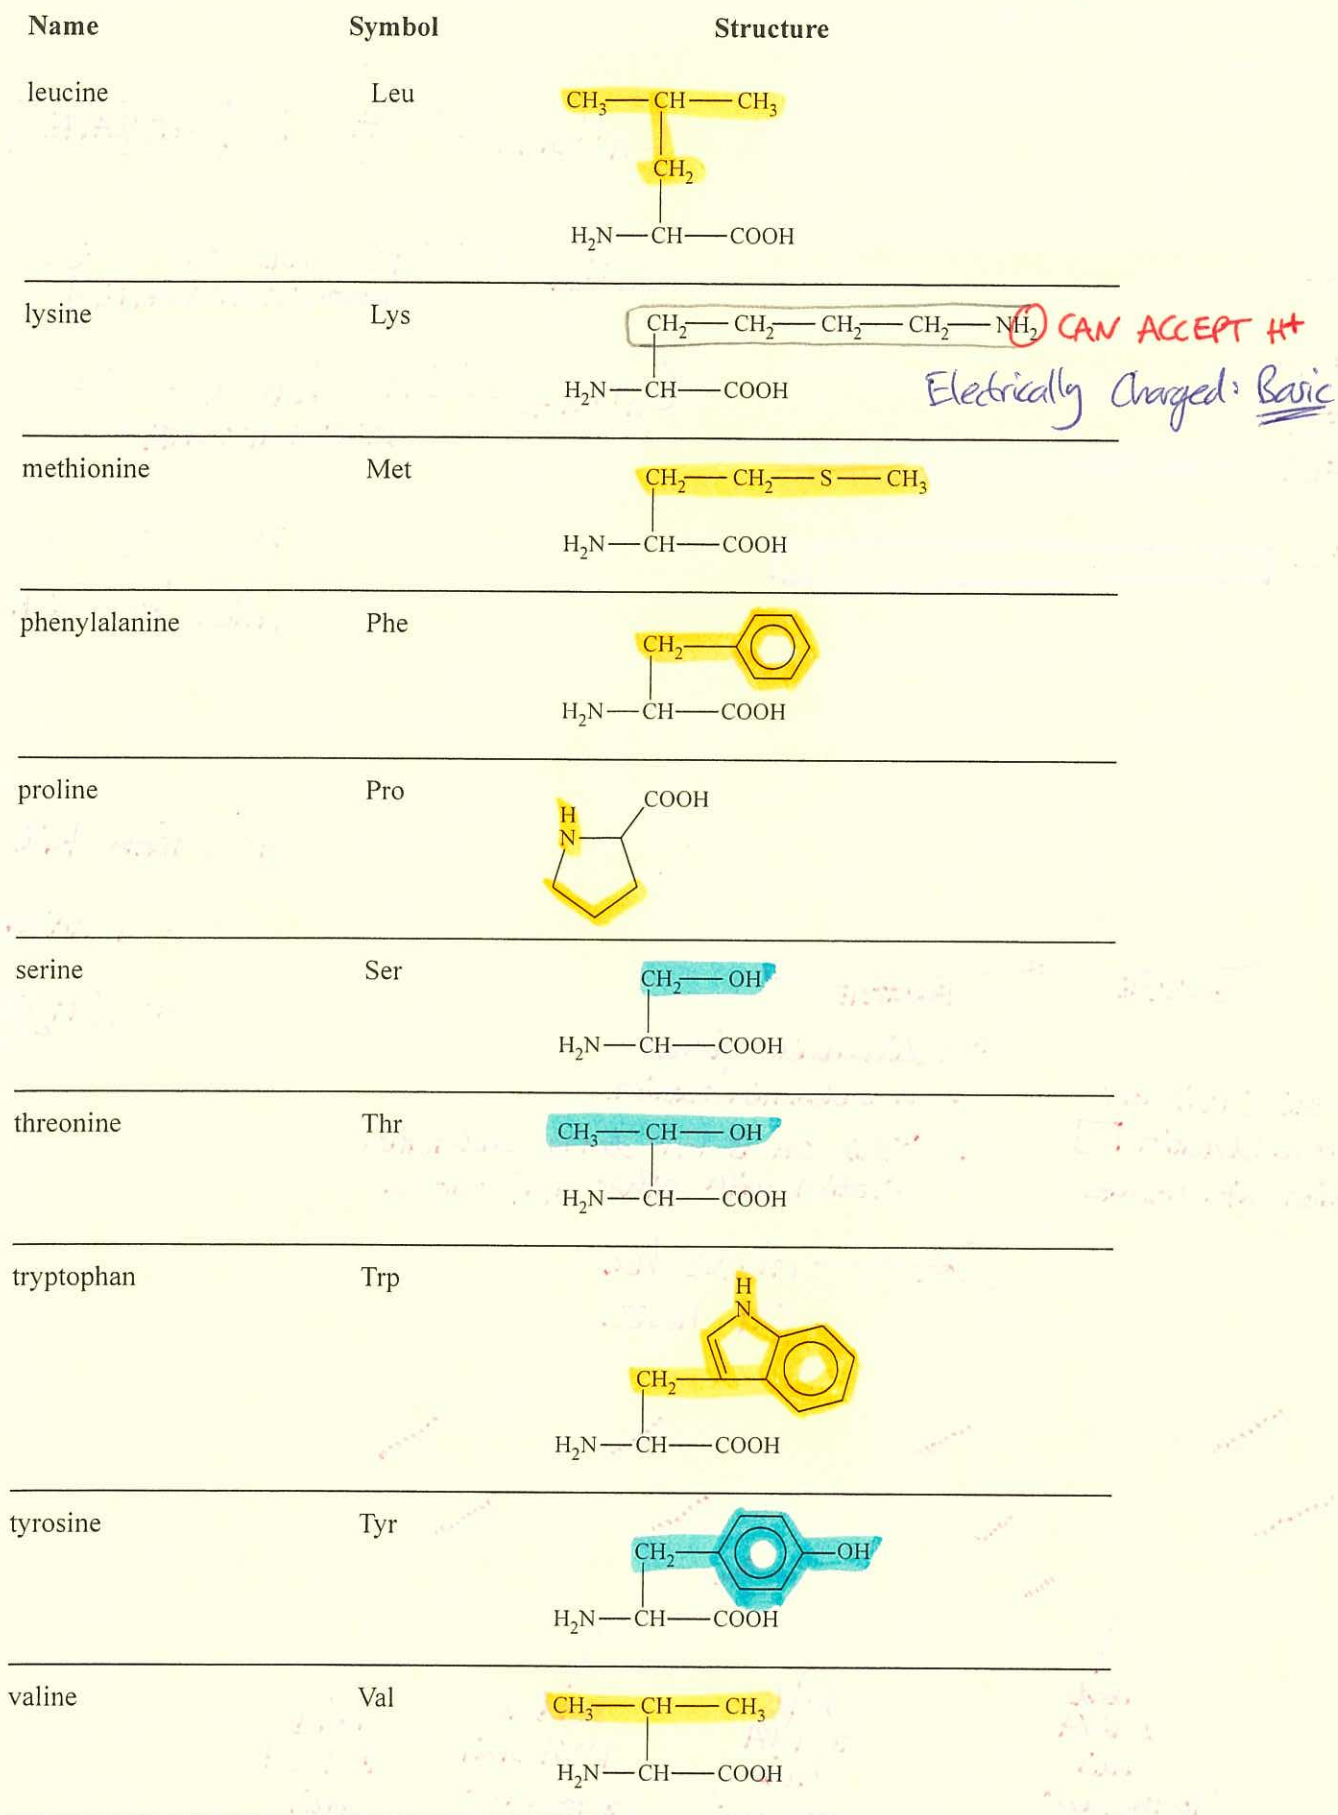 Name Symbol Structure
leucine Leu CH₃—CH—CH₃
CH₂
H₂N—CH—COOH
lysine Lys CH₂—CH₂—CH₂—CH₂—NH₂ CAN ACCEPT H+
H₂N—CH—COOH Electrically Charged: Basic
methionine Met CH₂—CH₂—S—CH₃
H₂N—CH—COOH
phenylalanine Phe CH₂
H₂N—CH—COOH
proline Pro COOH
H
N
serine Ser CH₂—OH
H₂N—CH—COOH
threonine Thr CH₃—CH—OH
H₂N—CH—COOH
tryptophan Trp H
N
CH₂
H₂N—CH—COOH
tyrosine Tyr CH₂ OH
H₂N—CH—COOH
valine Val CH₃—CH—CH₃
H₂N—CH—COOH